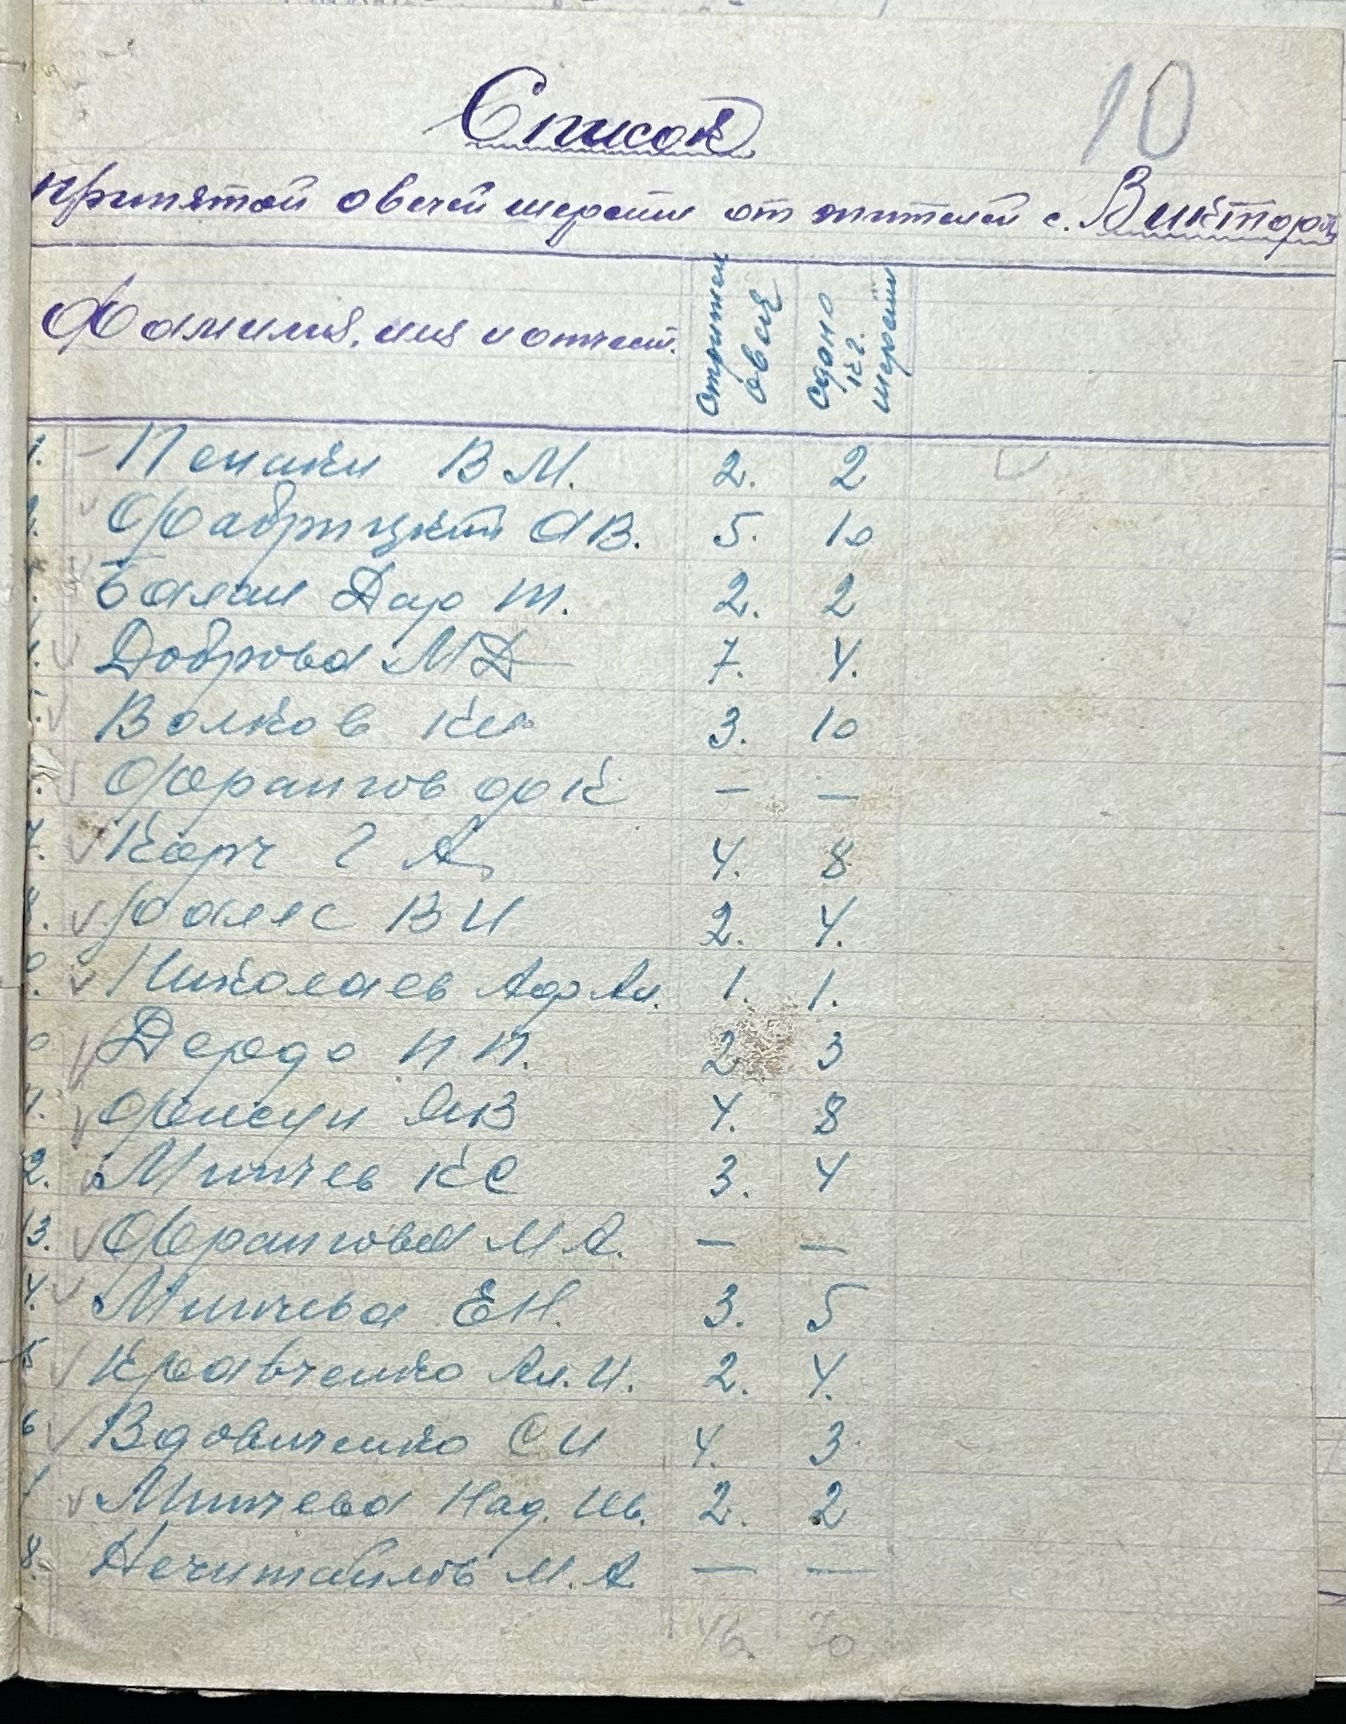 10
Список
принятой овечей шерсти от жителей с. Виктор
Фамилия, имя и отчест.
Острижен овец
Сдано кг. шерсти
1. Пенаки В М. 2. 2
2. Фабрицкий А В. 5. 10
Балан Дар Т. 2. 2
4. Доброва М Д 7. 4.
5. Волков 3. 10
Франгов Ф К — —
7. Карч Г А 4. 8
8. Фаляс В И 2. 4.
Николаев Аф Ал. 1. 1.
Дердо П П. 2 3
1. Фиксун В 4. 8
2. Минчев К С 3. 4
13. Франгова М А. — —
4. Минчева Е Н. 3. 5
5 Кравченко Ал. И. 2. 4.
6 Вдовиченко С И 4. 3
Минчева Над. Ив. 2. 2
8. Нечитайлов М. А. — —
46. 70